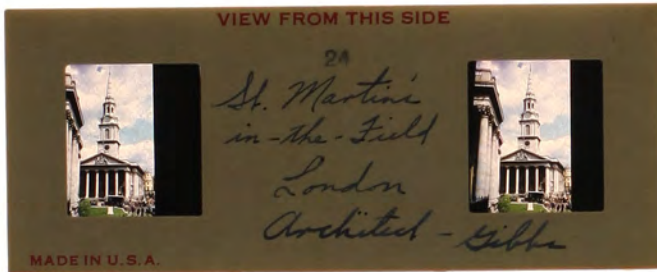 VIEW FROM THIS SIDE
24
St. Martin's
in-the-Field
London
Architect - Gibbs
MADE IN U.S.A.